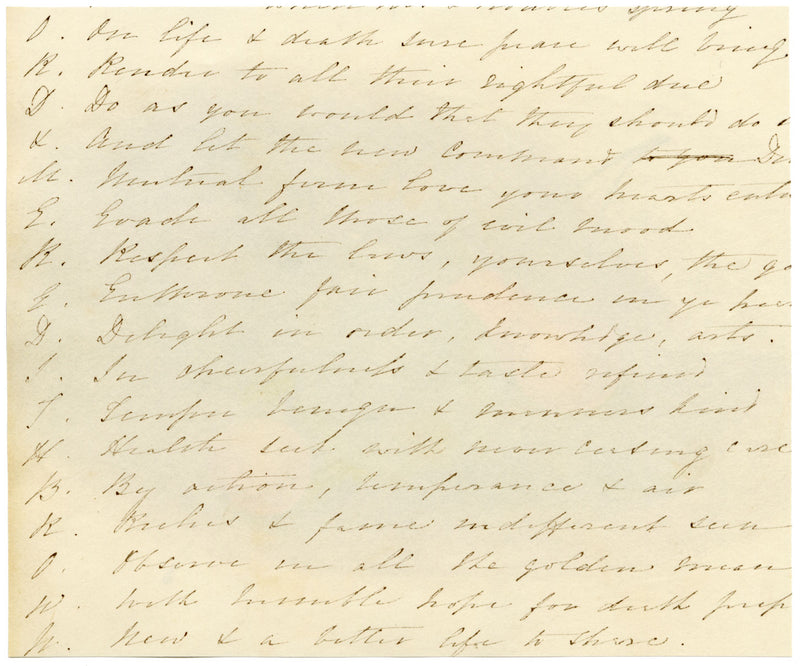 spring
O. On life & death sure peace will bring
R. Render to all their rightful due
D. Do as you would that they should do
&. And let the new command to you
M. Mutual firm love your hearts
E. Evade all those of evil mood
R. Respect the laws, yourselves, the
E. Enthrone fair prudence in ye
D. Delight in order, knowledge, arts.
I. In cheerfulness & taste refined
T. Temper benign & manners kind
H. Health seek with never ceasing care
B. By action, temperance & air
R. Riches & fame indifferent seen
O. Observe in all the golden mean
W. With humble hope for death
N. New & a better life to share.